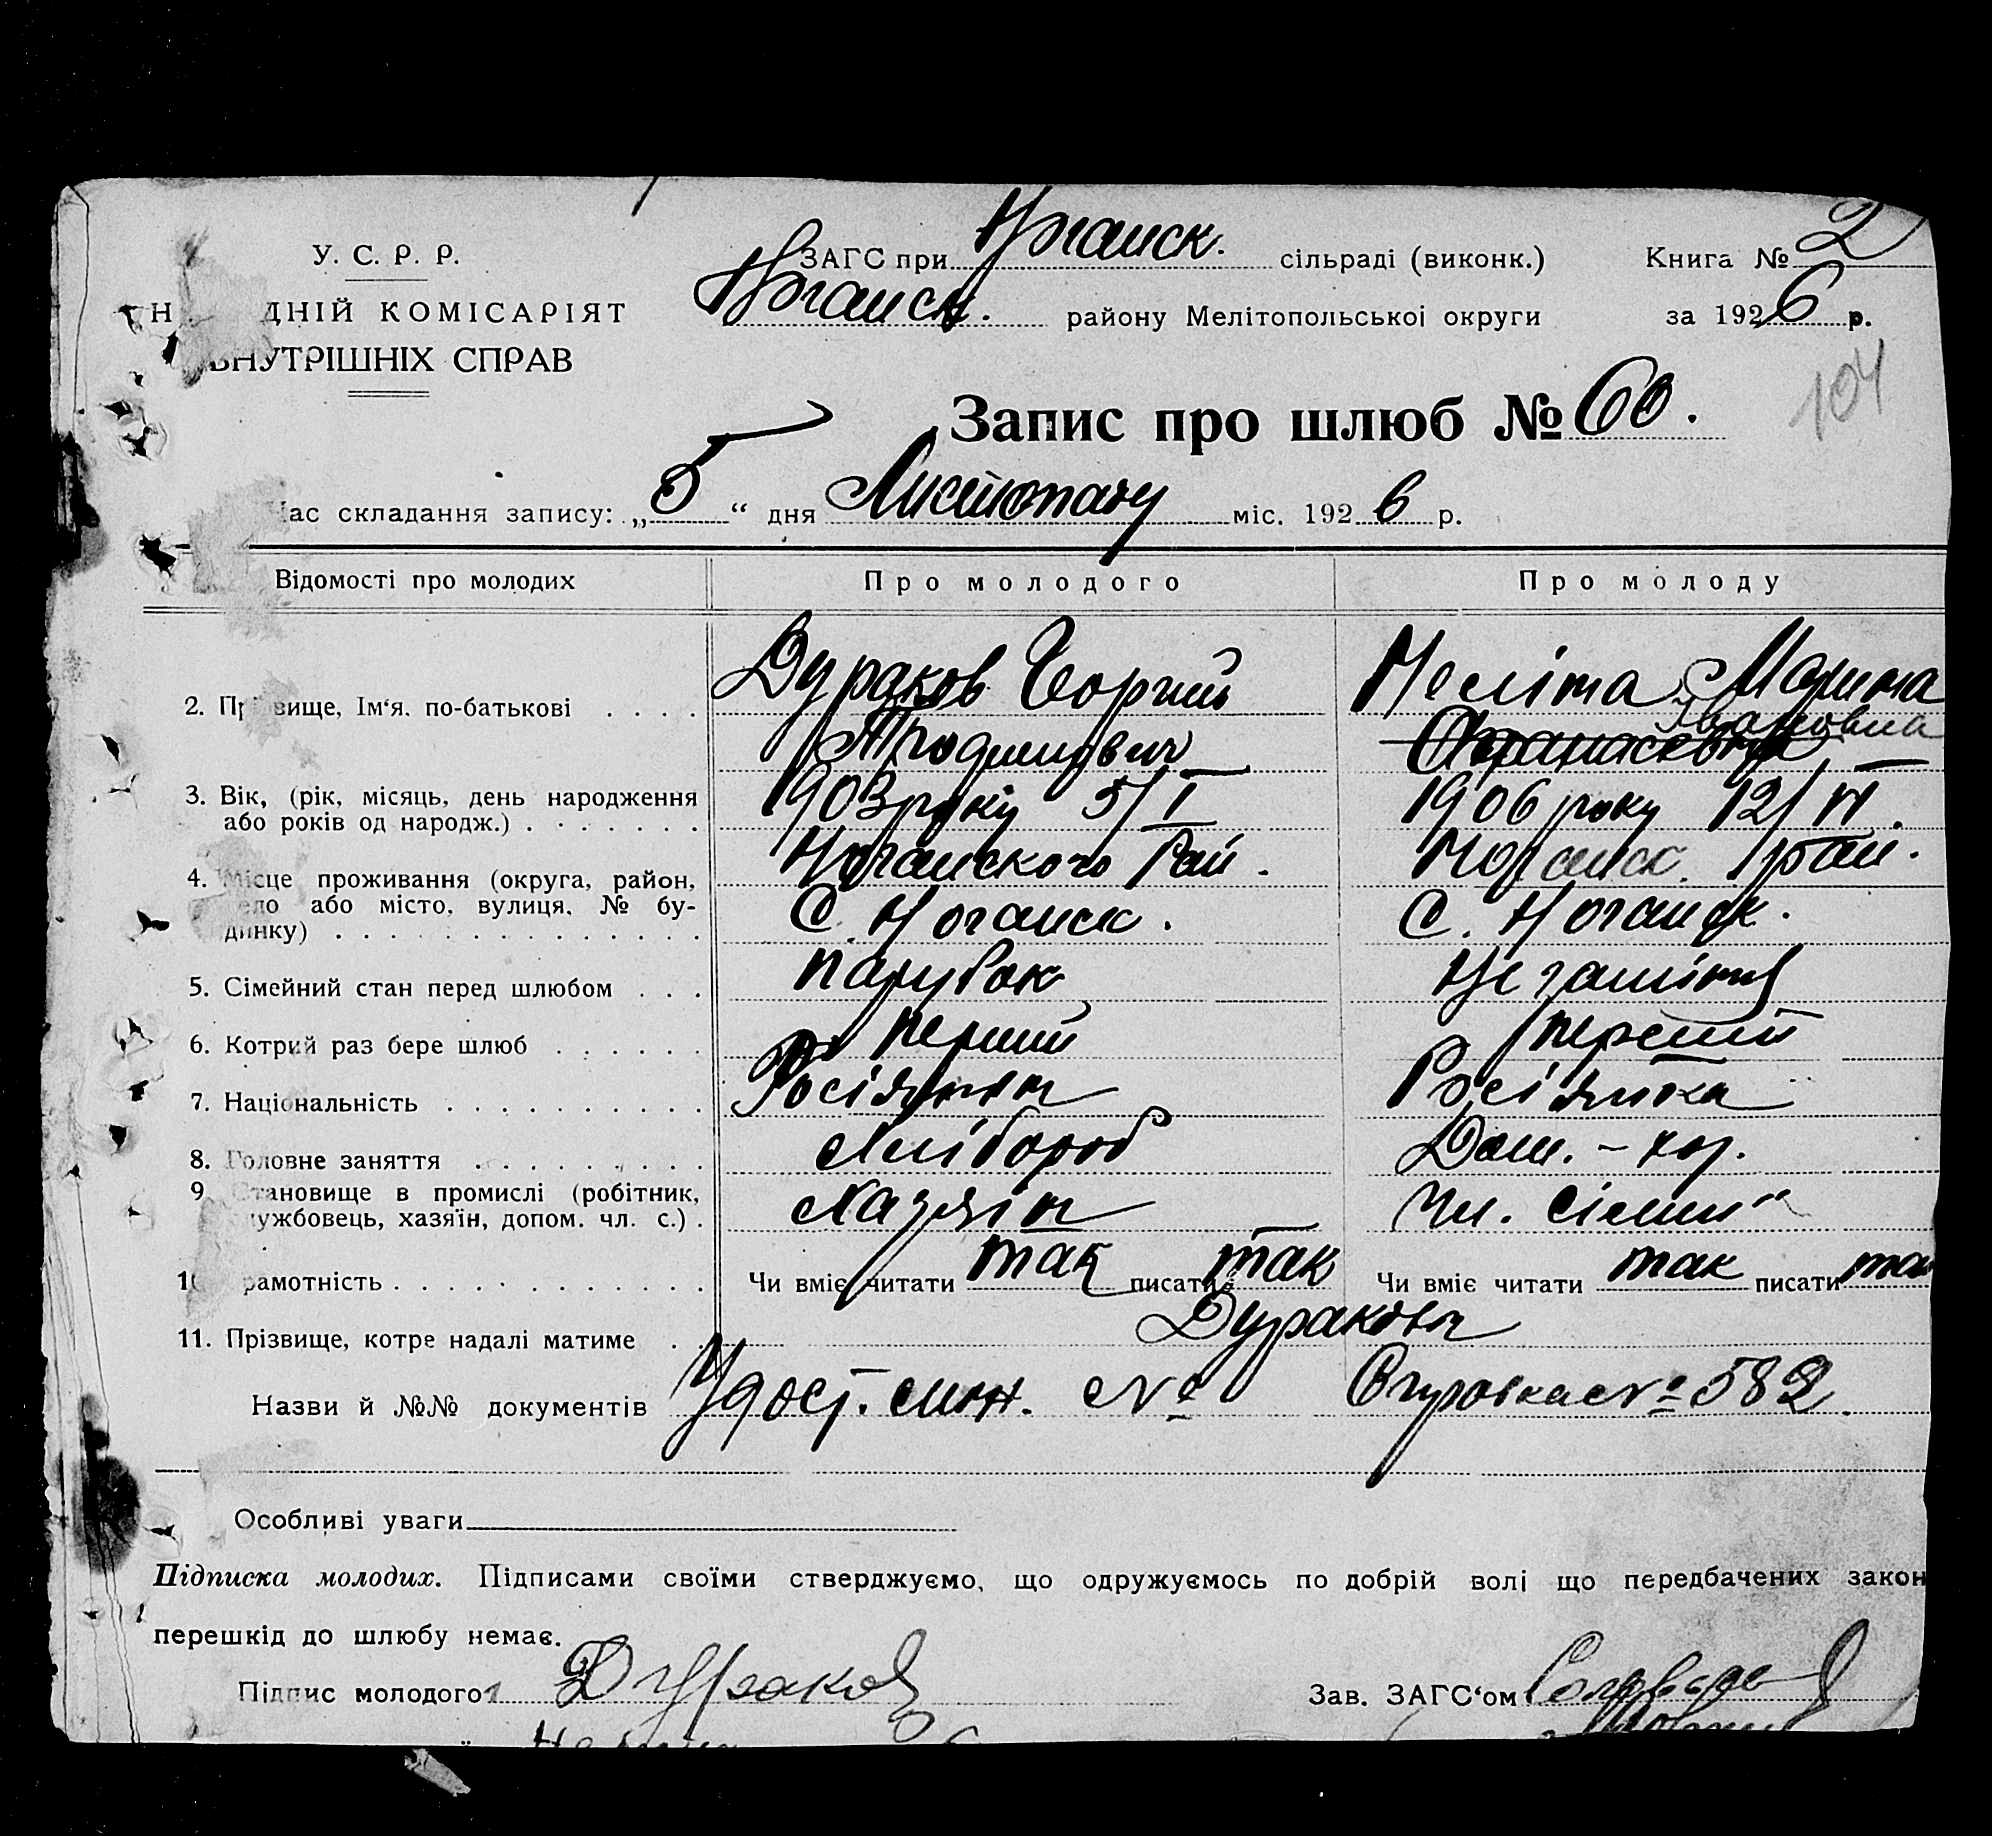 У. С. Р. Р.
ДНІЙ КОМІСАРІЯТ
ВНУТРІШНІХ СПРАВ
ЗАГС при Ногайск. сільраді (виконк.)
Ногайск. району Мелітопольської округи
Книга № 2
за 1926 р.
104
Запис про шлюб № 60.
Час складання запису: „5“ дня Листопаду міс. 1926 р.
Відомості про молодих Про молодого Про молоду
2. Прізвище, Ім‘я, по-батькові . . . . Дураков Георгий Меліта Марина
Ивановна
3. Вік, (рік, місяць, день народження 1903 року 5/I 1906 року 12/VI.
або років од народж.) . . . . . . .
4. Місце проживання (округа, район, Ногайского Рай. Ногайск. рай.
село або місто, вулиця, № бу- С. Ногайск. С. Ногайск.
динку) . . . . . . . . . . . . . .
5. Сімейний стан перед шлюбом . . . парубок Незаміжня
6. Котрий раз бере шлюб . . . . . . перший перший
7. Національність . . . . . . . . . . Росіянин Росіянка
8. Головне заняття . . . . . . . . . Хлібороб Дом. - хоз.
9. Становище в промислі (робітник, Хазяін Чл. сімии
службовець, хазяїн, допом. чл. с.) .
10. Грамотність . . . . . . . . . . . . Чи вміє читати так писати так Чи вміє читати так писати та
11. Прізвище, котре надалі матиме . . Дуракови
Назви й №№ документів Удост. лич. № Справка № 582.
Особливі уваги
Підписка молодих. Підписами своїми стверджуємо, що одружуємось по добрій волі що передбачених закон
перешкід до шлюбу немає.
Підпис молодого Дураков Зав. ЗАГС‘ом